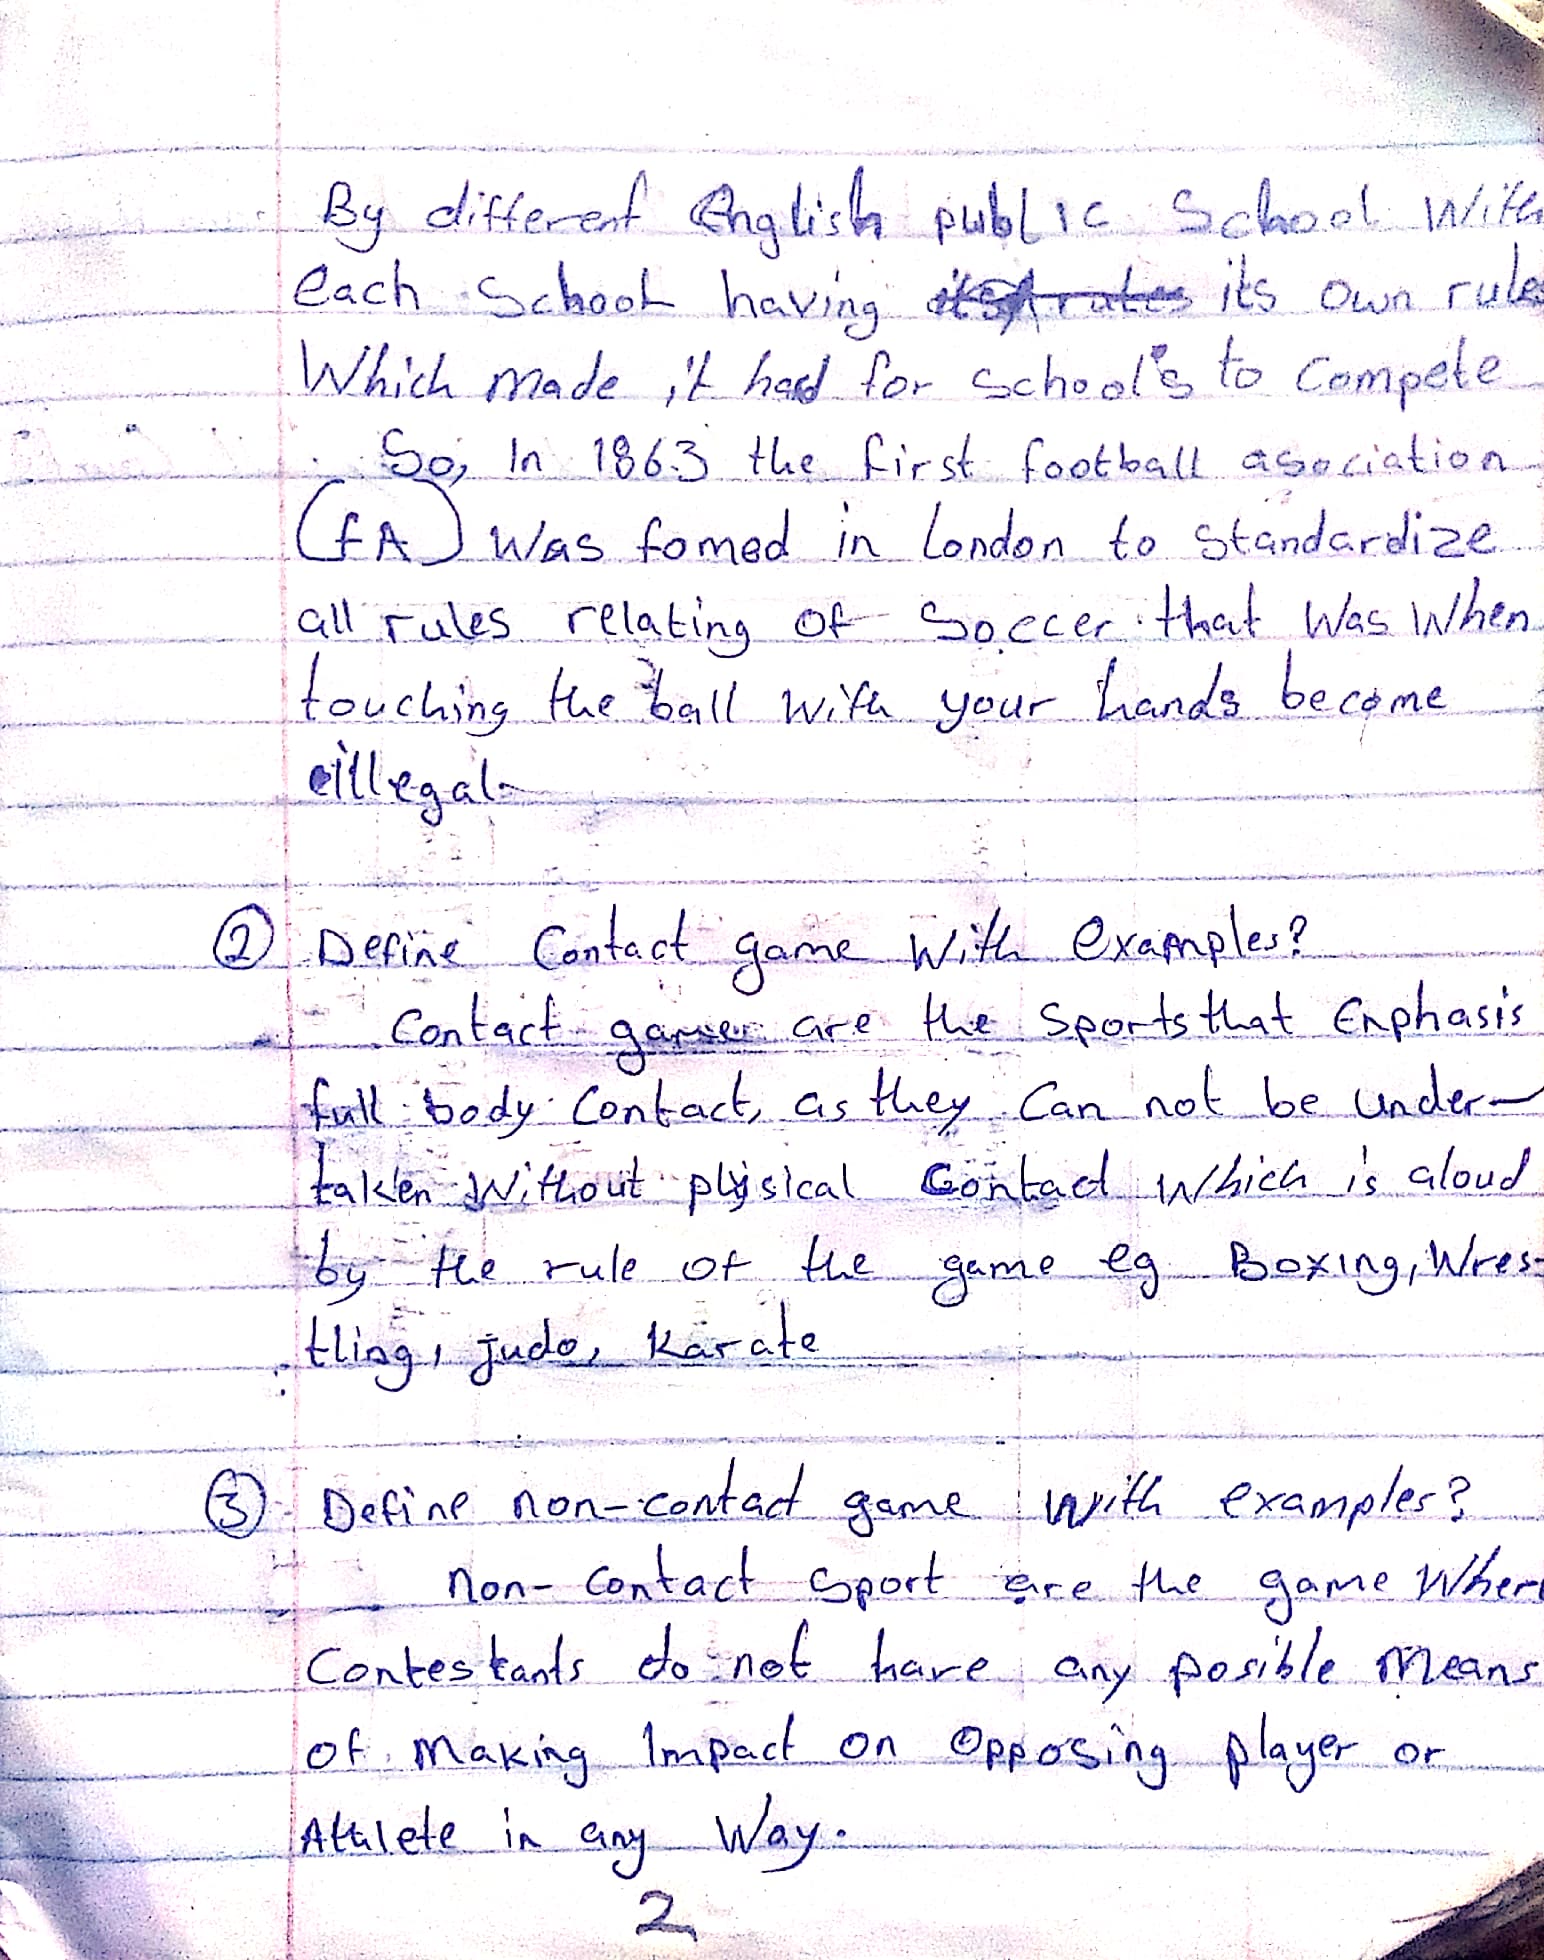 By different English public School With
each School having its own rules
Which made it had for school's to compete
So, In 1863 the first football asociation
(fA) was fomed in London to standardize
all rules relating of Soccer that Was When
touching the ball with your hands become
eillegal
② Define Contact game with examples?
Contact games are the Sports that Enphasis
full body Contact, as they Can not be under-
taken Without plysical Contact which is aloud
by the rule of the game eg Boxing, Wres-
tling, judo, Karate
③ Define non-contact game with examples?
Non-contact Sport are the game Where
Contestants do not have any posible Means
of Making Impact on Opposing player or
Athlete in any Way.
2